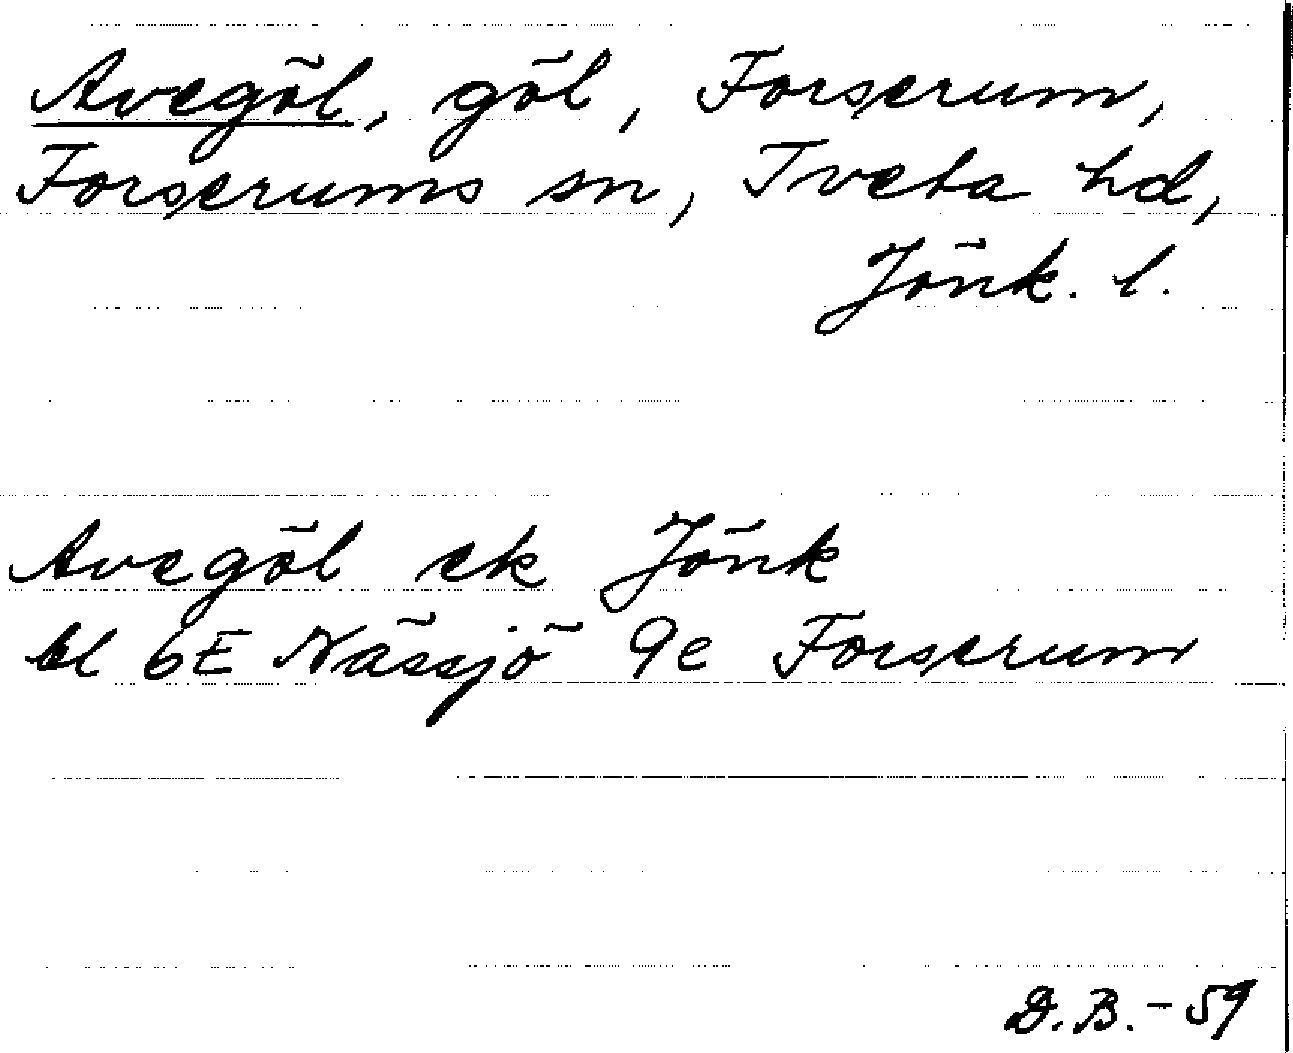 Avegöl, göl, Forserum,
Forserums sn, Tveta hd,
Jönk. l.
Avegöl ek Jönk
bl 6E Nässjö 9e Forserum
D.B. - 59